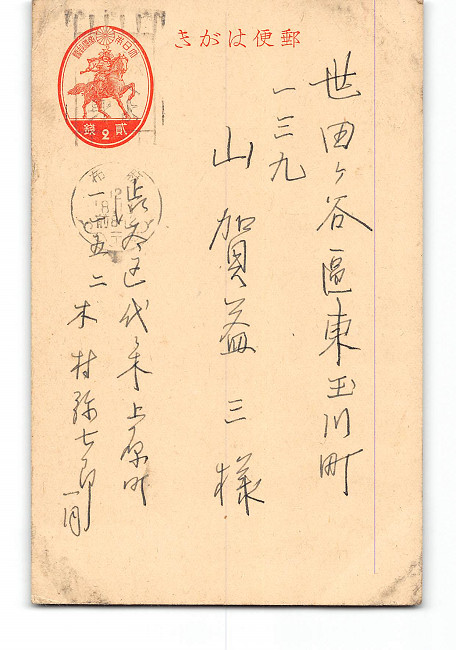 郵便はがき
大日本帝國郵便
貳錢
2
世田ヶ谷區東玉川町
一三九
山賀益三様
渋谷区代々木上原町
一一五二木村弥七郎